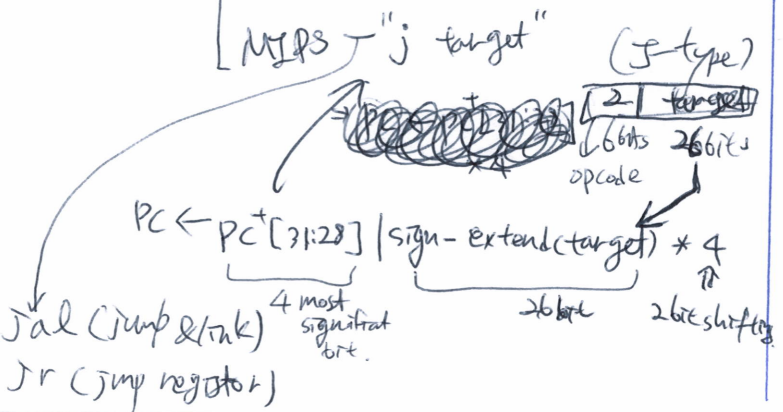 MIPS - "j target"
(J-type)
2 | target
6bits 26bits
opcode
PC ← PC⁺[31:28] | sign-extend(target) * 4
4 most significat bit.
26bit
2bit shifting
jal (jump & link)
jr (jmp registor)